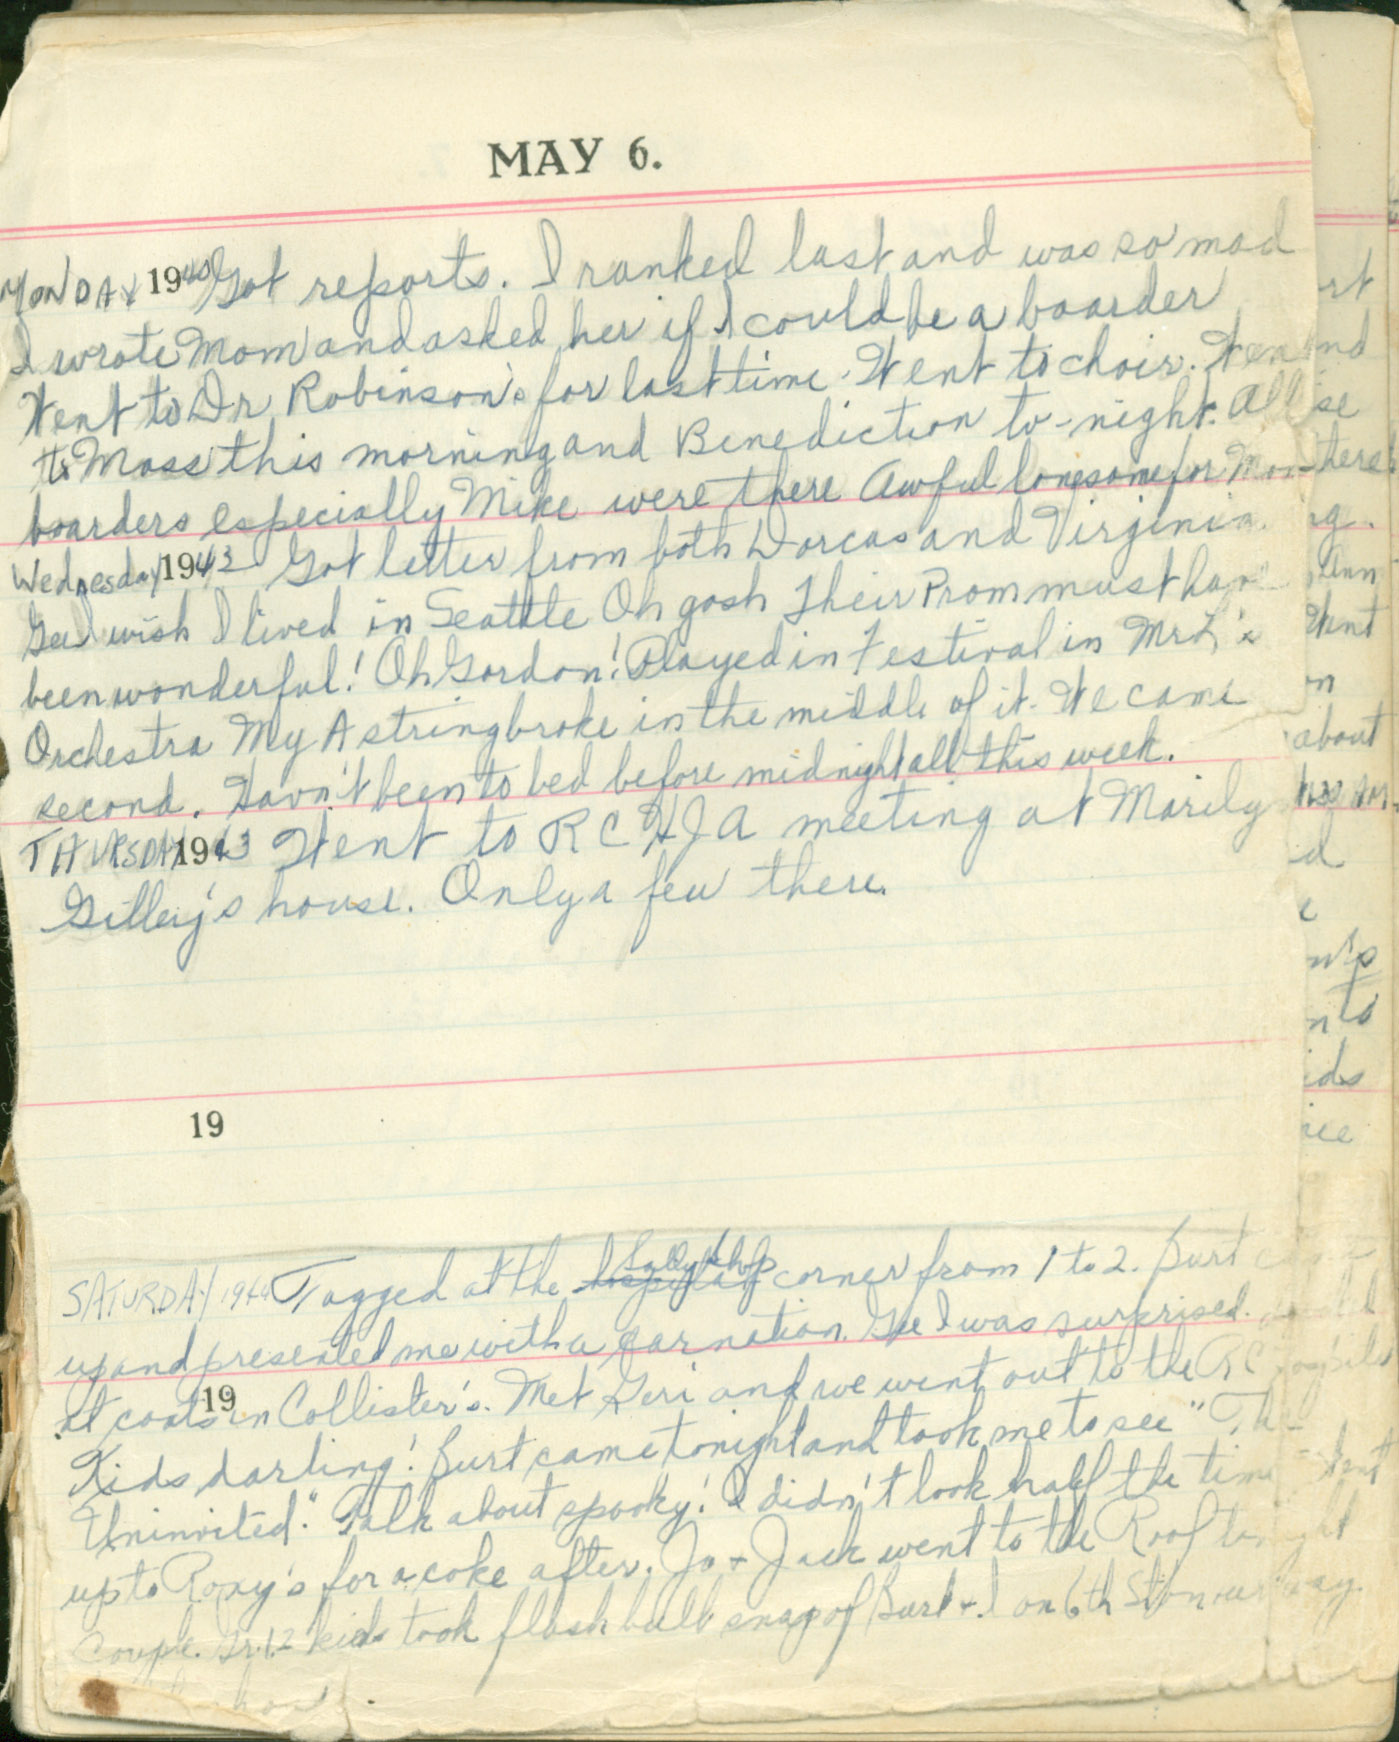 MAY 6.
MONDAY 1940 Got reports. I ranked last and was so mad
I wrote Mom and asked her if I could be a boarder
Went to Dr Robinson's for last time. Went to choir. Went
to Mass this morning and Benediction to-night. All
boarders especially Mike were there Awful lonesome for Mom
Wednesday 1942 Got letter from both Dorcas and Virginia.
Gee I wish I lived in Seattle Oh gosh Their Prom must have
been wonderful! Oh Gordon! Played in Festival in Mrs L's
Orchestra My A string broke in the middle of it. We came
second. Havn't been to bed before midnight all this week.
THURSDAY 1943 Went to R C H J A meeting at Marily
Gilley's house. Only a few there.
19
SATURDAY 1944 Tagged at the hospital corner from 1 to 2. Burt
up and presented me with a carnation. Gee I was surprised.
at coats in Collister's. Met Geri and we went out to the RC
19
Kids darling! Burt came tonight and took me to see "The
Uninvited." Talk about spooky! I didn't look half the time
up to Roxy's for a coke after. Jo + Jack went to the Roof tonight
couple. Gr. 12 kids took flash bulb snap of Burt + I on 6th St on our way